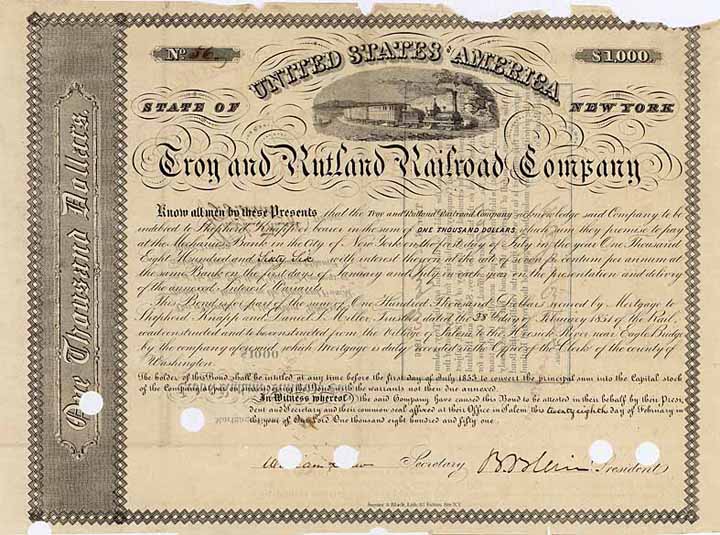 No 56
$1,000.
UNITED STATES OF AMERICA
STATE OF NEW YORK
Troy and Rutland Railroad Company
One Thousand Dollars.
Know all men by these Presents that the Troy and Rutland Railroad Company acknowledge said Company to be
indebted to Shepherd Knapp or bearer in the sum of ONE THOUSAND DOLLARS, which sum they promise to pay
at the Mechanics Bank in the City of New York on the first day of July in the year One Thousand
Eight Hundred and Sixty Six with interest thereon at the rate of seven per centum per annum at
the same Bank on the first days of January and July in each year on the presentation and delivery
of the annexed Interest Warrants.
This Bond is for part of the sum of One Hundred Thousand Dollars secured by Mortgage to
Shepherd Knapp and Daniel Trustees dated the 28 day of February 1851 of the Rail
road constructed and to be constructed from the Village of Salem to the Hoosick River near Eagle Bridge
by the company aforesaid which Mortgage is duly recorded in the Office of the Clerk of the county of
Washington.
The holder of this Bond shall be intitled at any time before the first day of July 1855 to convert the principal sum into the Capital stock
of the Company at par on surrendering the Bond with the warrants not then due annexed.
In Witness whereof the said Company have caused this Bond to be attested in their behalf by their Presi
dent and Secretary and their common seal affixed at their Office in Salem this twenty eighth day of February in
the year of Our Lord One thousand eight hundred and fifty one.
Secretary President
Lith. 61 Fulton Str. N.Y.